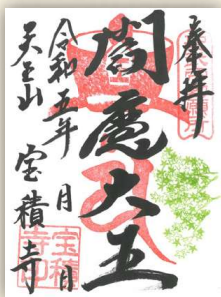 奉拝
閻魔大王
令和五年 月 日
天王山 宝積寺
宝積寺印